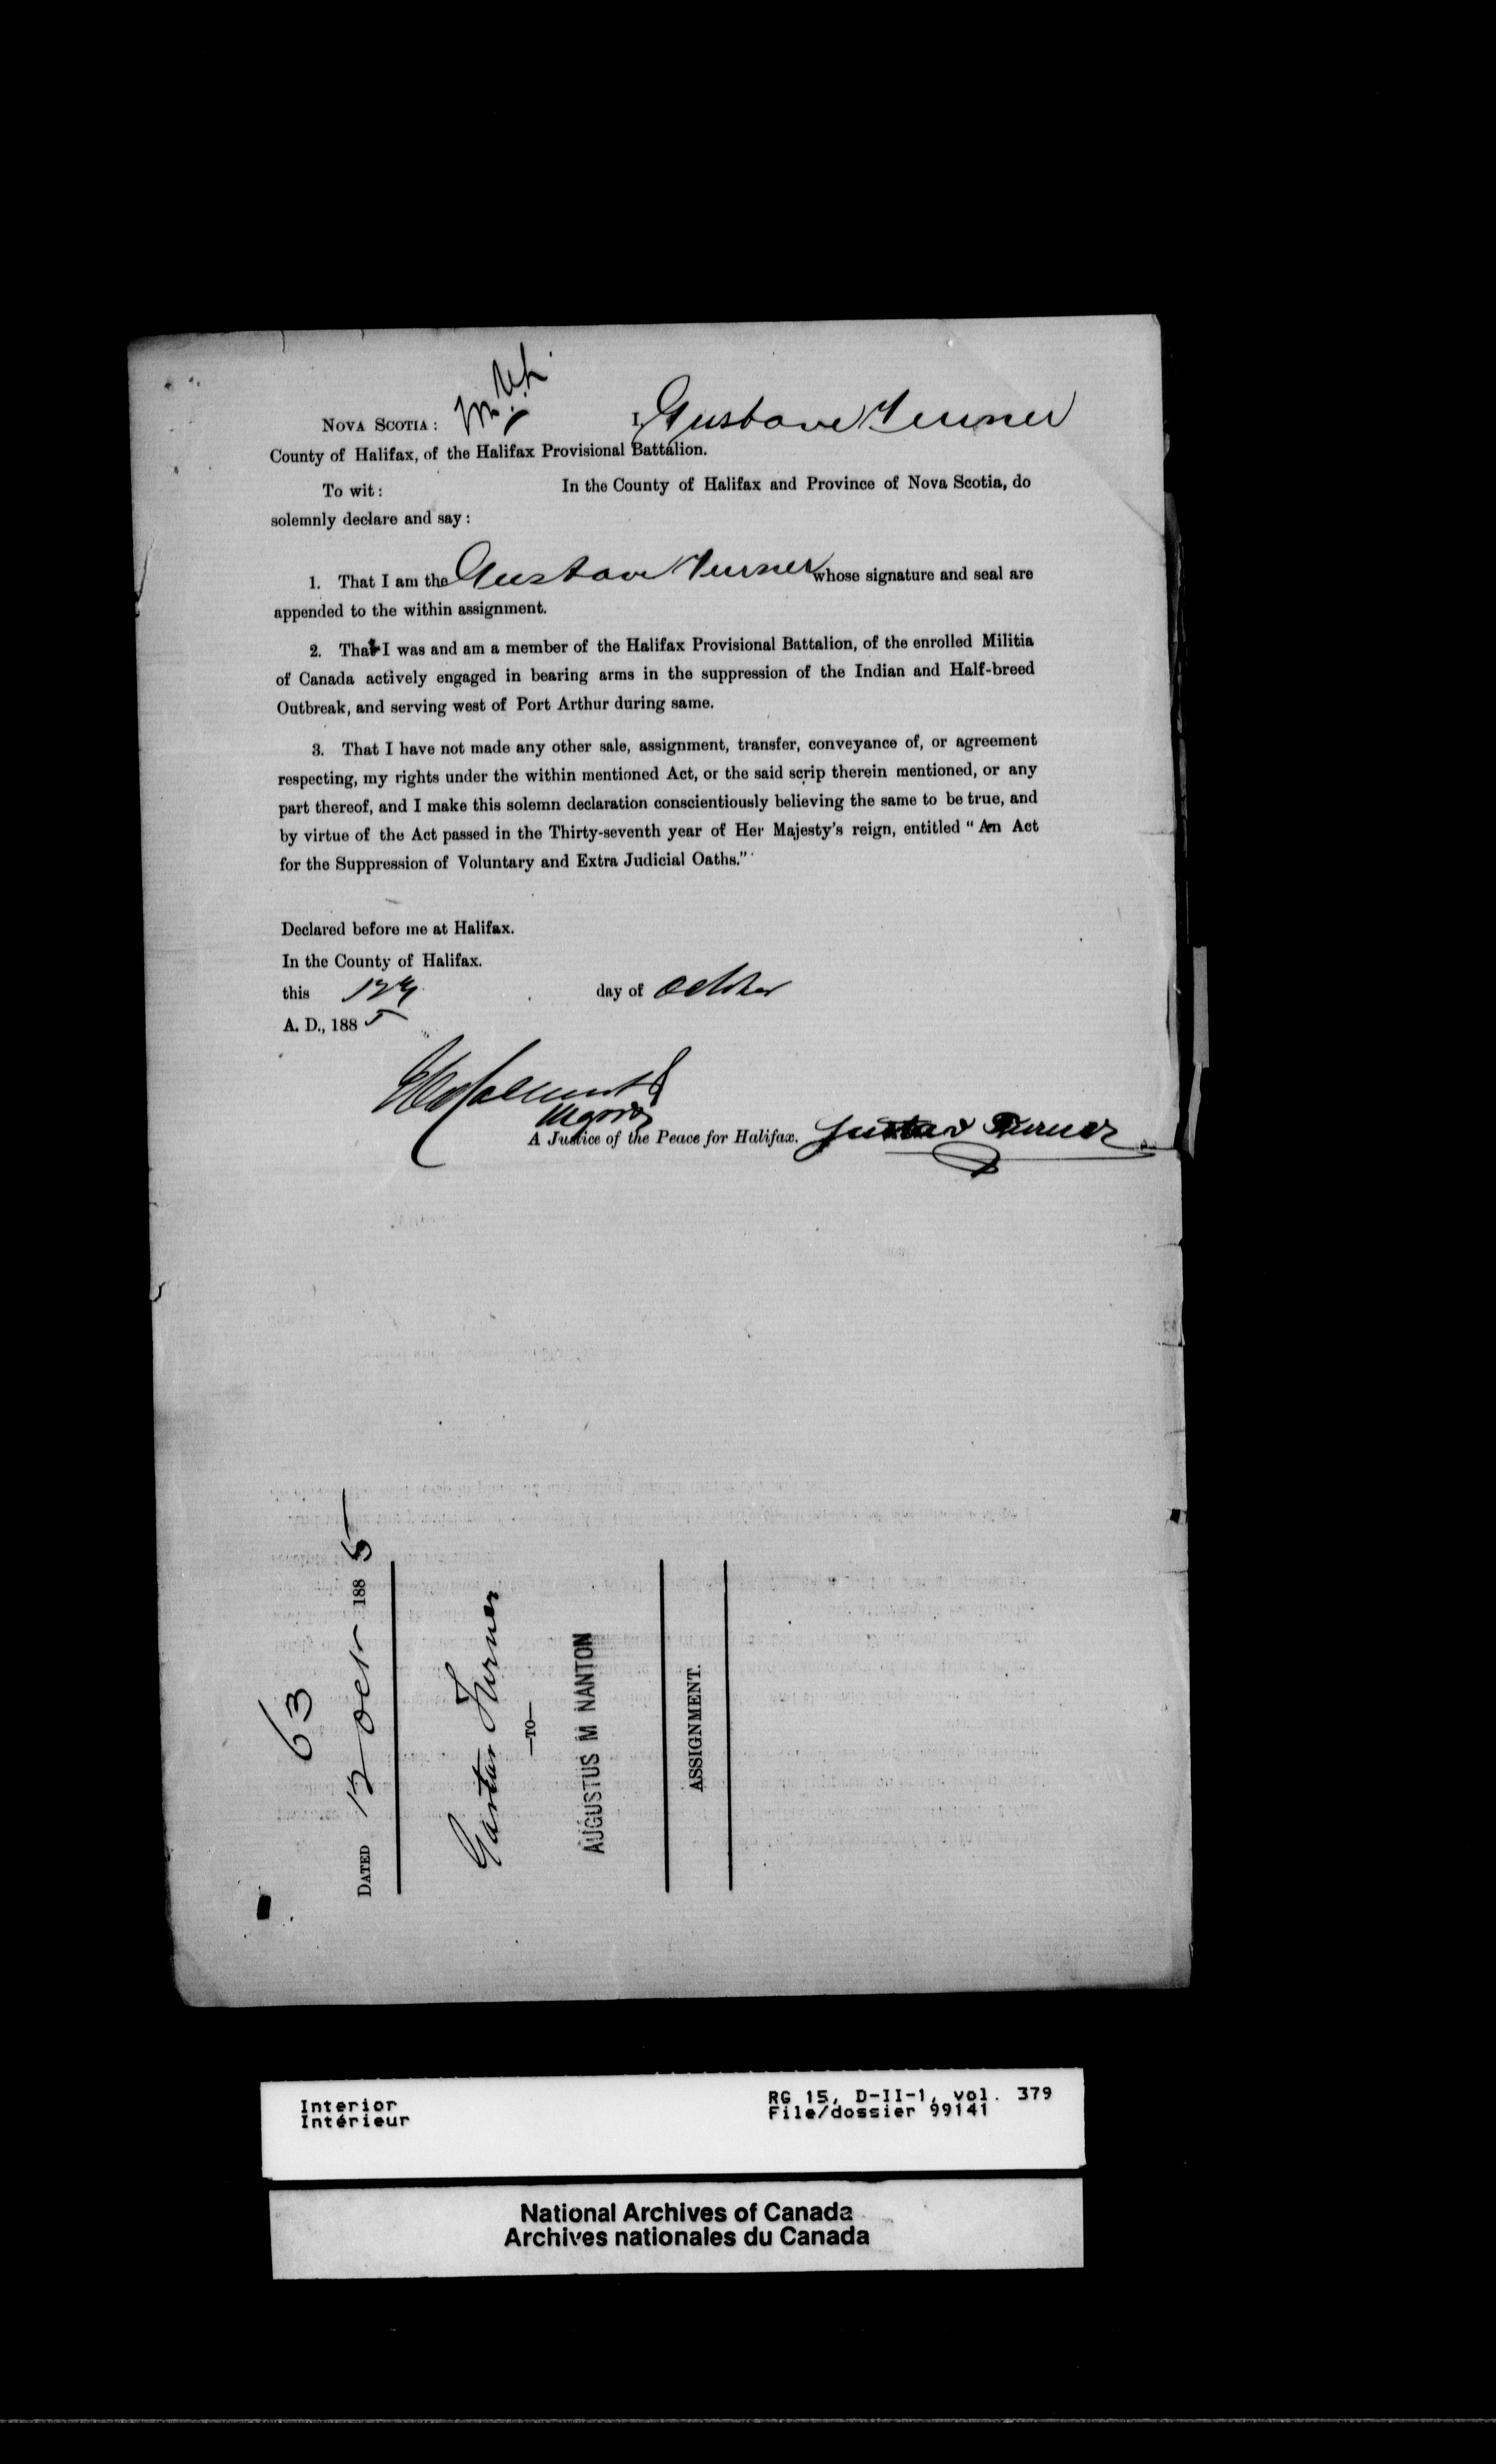 NOVA SCOTIA: I, Gustave Turner
County of Halifax, of the Halifax Provisional Battalion.
To wit: In the County of Halifax and Province of Nova Scotia, do
solemnly declare and say:
1. That I am the Gustave Turner whose signature and seal are
appended to the within assignment.
2. That I was and am a member of the Halifax Provisional Battalion, of the enrolled Militia
of Canada actively engaged in bearing arms in the suppression of the Indian and Half-breed
Outbreak, and serving west of Port Arthur during same.
3. That I have not made any other sale, assignment, transfer, conveyance of, or agreement
respecting, my rights under the within mentioned Act, or the said scrip therein mentioned, or any
part thereof, and I make this solemn declaration conscientiously believing the same to be true, and
by virtue of the Act passed in the Thirty-seventh year of Her Majesty's reign, entitled "An Act
for the Suppression of Voluntary and Extra Judicial Oaths."
Declared before me at Halifax.
In the County of Halifax.
this day of October
A. D., 1885
Major
A Justice of the Peace for Halifax. Gustav Turner
63
DATED 12 Oct 1885
Gustav Turner
—TO—
AUGUSTUS M NANTON
ASSIGNMENT.
Interior
Intérieur
RG 15, D-II-1, vol. 379
File/dossier 99141
National Archives of Canada
Archives nationales du Canada